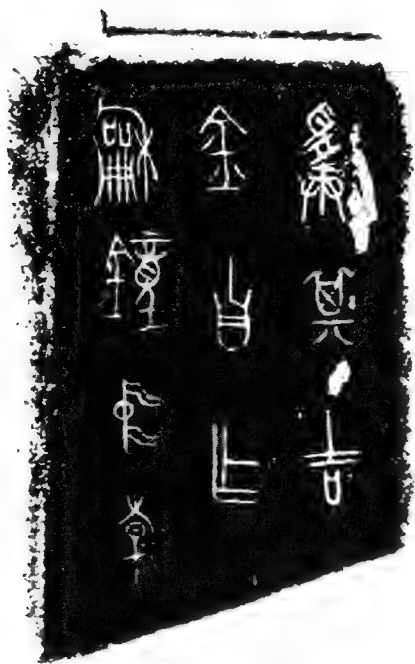 擇其吉
金自乍
龢鐘中